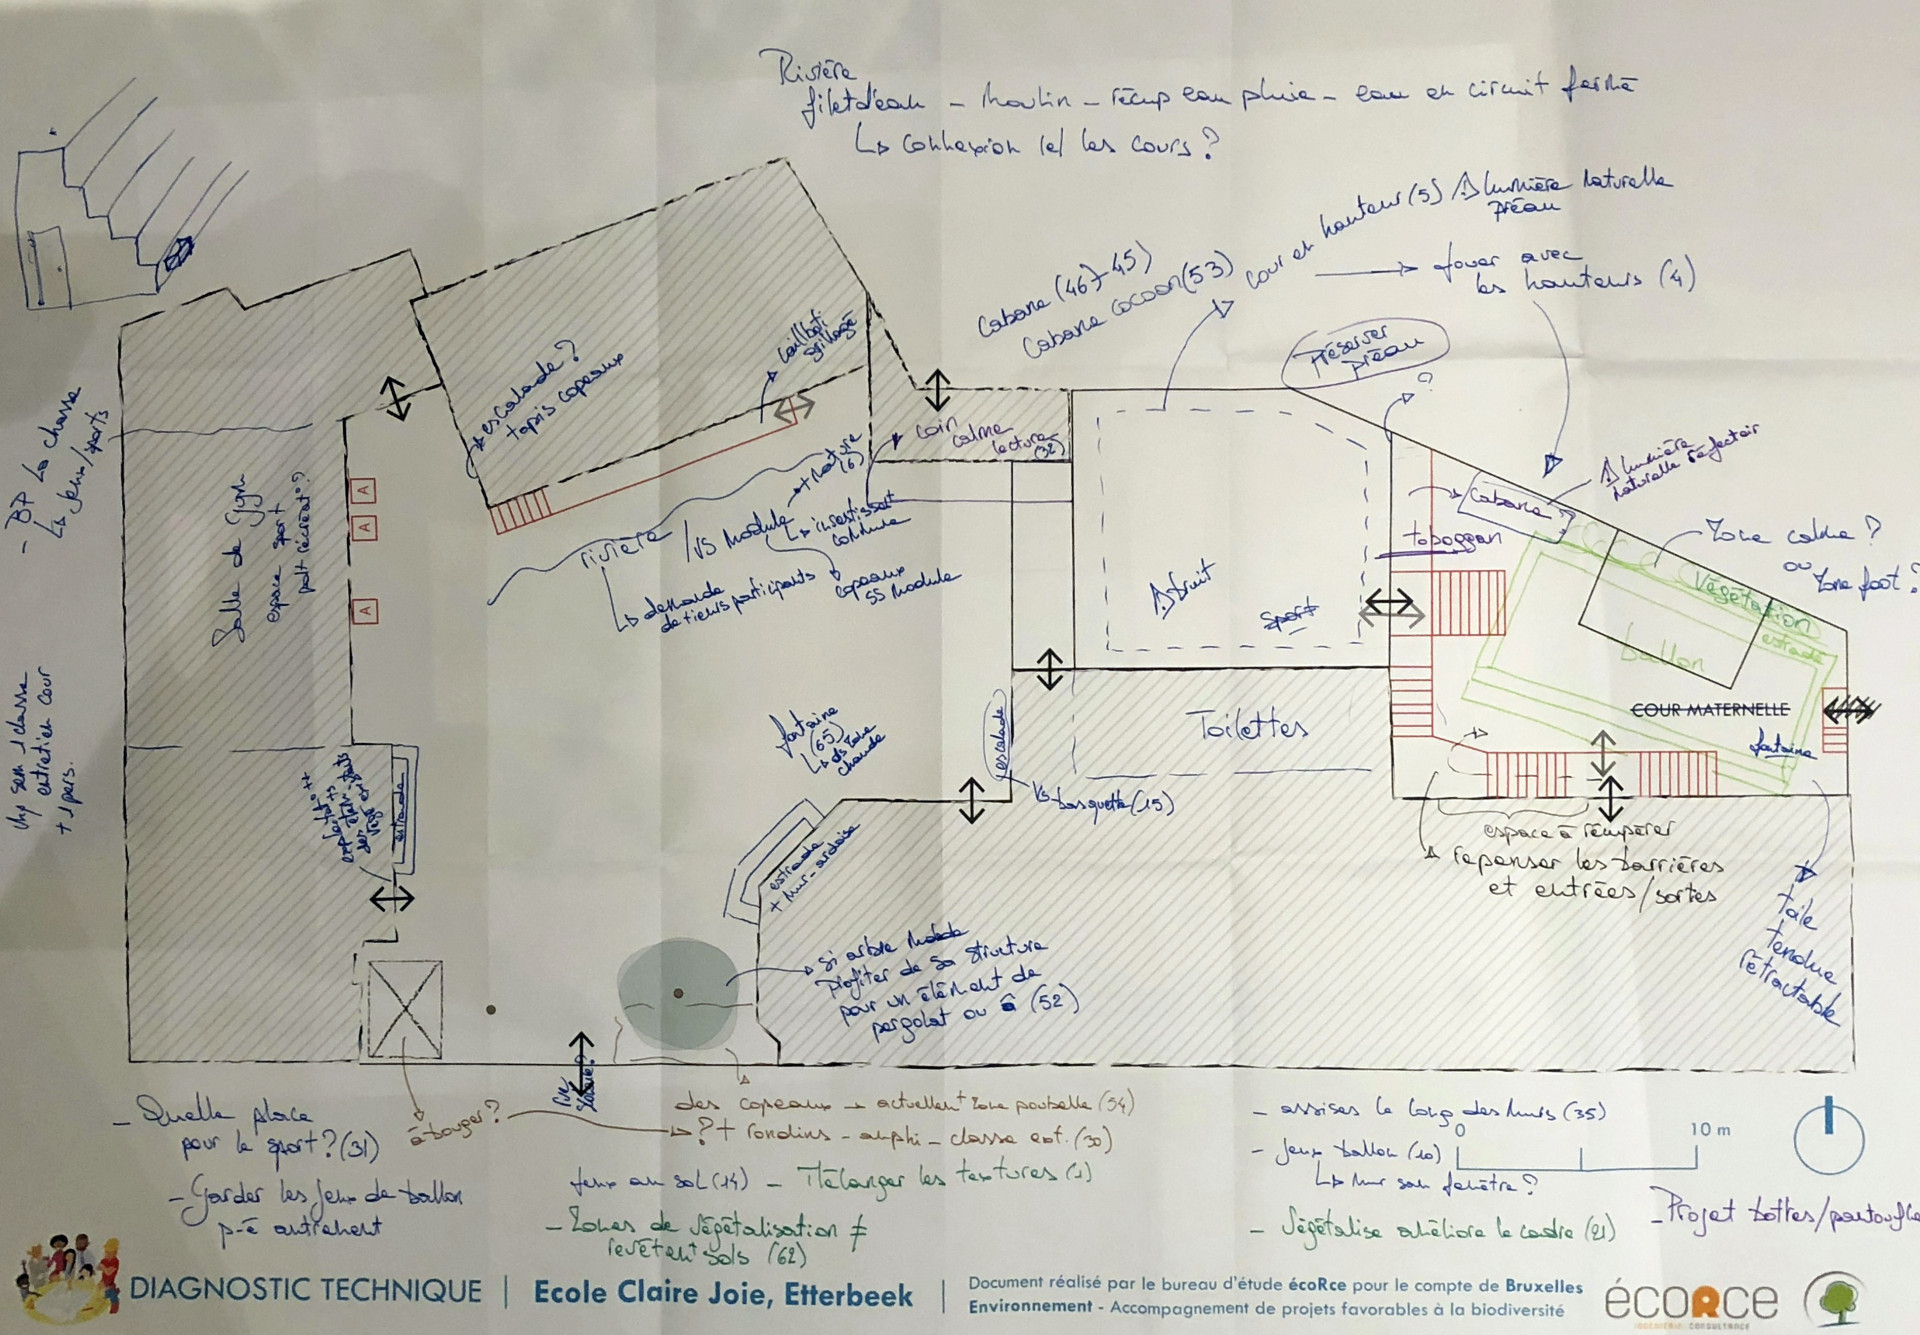 Rivière
filet d'eau - Moulin - récup eau pluie - eau en circuit fermé
↳ connexion les cours ?
cour en hauteur (5) ⚠ lumière naturelle
préau
→ jouer avec
les hauteurs (4)
Cabane (46) - 45)
Cabane cocoon (53)
Préserver
préau
?
escalade ?
tapis copeaux
caillboti
grillagé
coin
calme
lecture
(32)
- BP La chasse
↳ jeux/sports
Salle de Gym
espace sport
pdt récréat° ?
A
A
A
rivière / VS Module
+ Nature
(6)
↳ investissement
commune
↳ demande
de tiers participants
copeaux
SS Module
⚠ bruit
sport
Cabane ?
toboggan
⚠ lumière
naturelle
Zone calme ?
ou
Zone foot ?
végétation
estrade
ballon
COUR MATERNELLE
fontaine
Toilettes
fontaine
(65)
↳ ds Zone
chaude
escalade
Vs basquette (15)
1 classe
entretien cour
+ 1 pers.
estrade
estrade
+ Mur-ardoise
espace à récupérer
repenser les barrières
et entrées/sortes
toile
tendue
rétractable
si arbre
Profiter de sa structure
pour un élément de
pergolat ou (52)
- Quelle place
pour le sport ? (31)
- Garder les jeux de ballon
p-ê autrement
à bouger ?
des copeaux → actuellemt Zone poubelle (54)
? + rondins - amphi - classe ext. (30)
Jeux au sol (14) - Mélanger les textures (1)
- Zones de végétalisation ≠
revêtemt sols (62)
- assises le long des Murs (35)
- Jeux ballon (10)
↳ Mur san fenêtre ?
- Végétalise améliore le cadre (21)
0
10 m
- Projet bottes/
DIAGNOSTIC TECHNIQUE | Ecole Claire Joie, Etterbeek
Document réalisé par le bureau d'étude écoRce pour le compte de Bruxelles
Environnement - Accompagnement de projets favorables à la biodiversité
écoRce
INGÉNIERIE CONSULTANCE